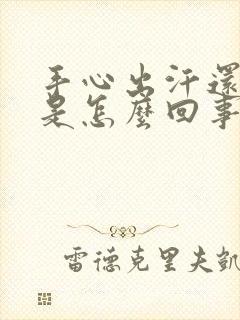 手心出汗還
是怎麼回事
雷德克里夫凱